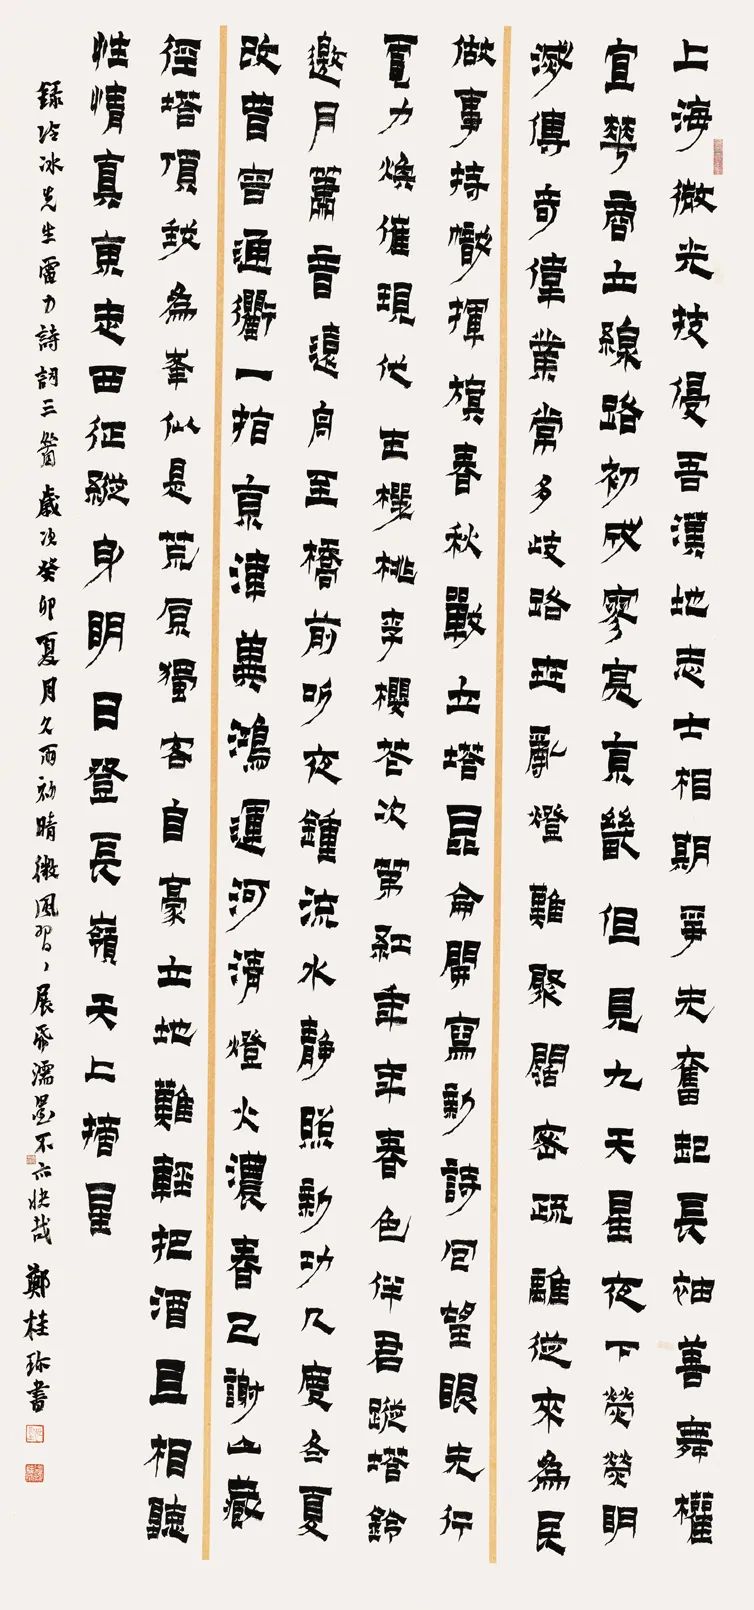 上海微光技侵吾漢地志士相期爭先奮起長袖善舞權
宜華商立線路初成寥亮京畿但見九天星夜下熒熒明
滅傳奇偉業當多歧路世亂燈難聚闊密疏離從來為民
做事持幟揮旗春秋戰立塔昆侖開寫新詩回望眼先行
電力煥催現代桃李櫻花次第紅年年春色伴君蹤塔鈴
邀月簫音遠宮至橋前听夜鐘流水靜照新功几度冬夏
改昔曾通衢一指京津冀鴻運河清燈火濃春已謝山藏
徑塔頂為峯似是荒原獨客自豪立地難輕把酒且相聽
性情真東走西征縱身明日登長嶺天上摘星
錄冷冰先生電力詩詞三首歲次癸卯夏月久雨初晴微風習習展紙濡墨不亦快哉 鄭桂珍書